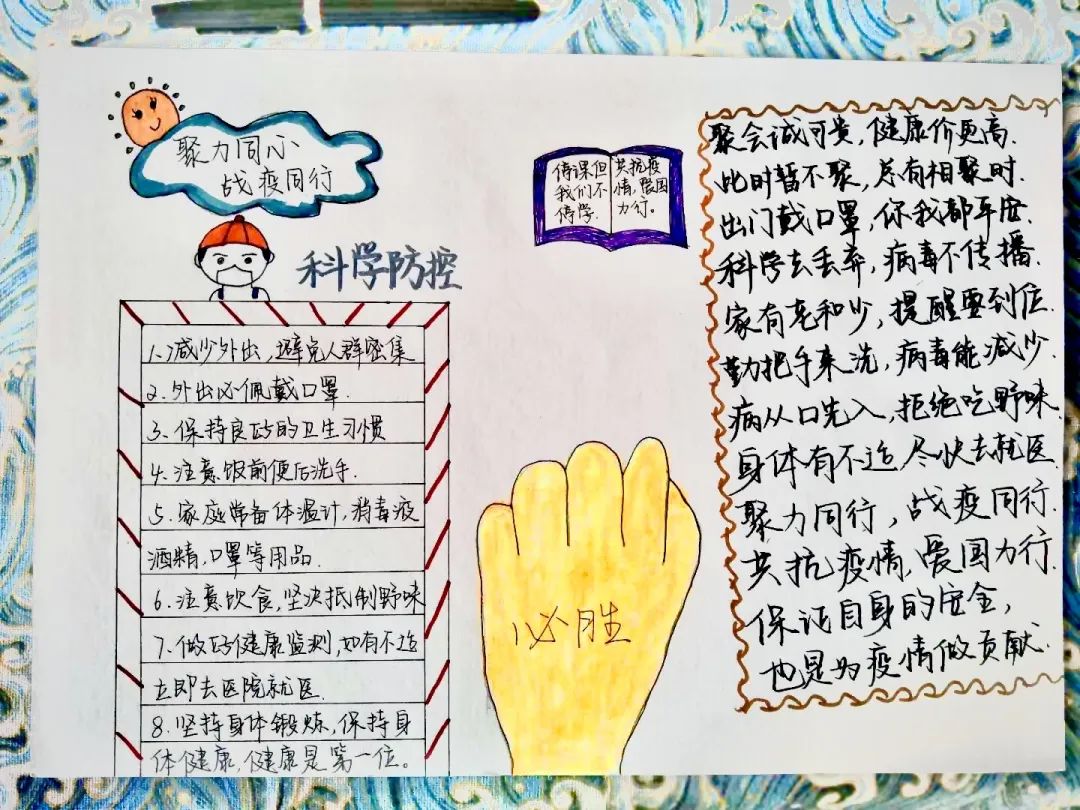 聚力同心
战疫同行
科学防控
1、减少外出，避免人群密集
2、外出必佩戴口罩.
3、保持良好的卫生习惯
4、注意饭前便后洗手.
5、家庭常备体温计，消毒液
酒精，口罩等用品.
6、注意饮食，坚决抵制野味
7、做好健康监测，如有不适
立即去医院就医.
8、坚持身体锻炼，保持身
体健康，健康是第一位。
停课但
我们不
停学.
共抗疫
情，爱国
力行。
必胜
聚会诚可贵，健康价更高.
此时暂不聚，总有相聚时.
出门戴口罩，你我都平安.
科学去丢弃，病毒不传播.
家有老和少，提醒要到位.
勤把手来洗，病毒能减少.
病从口先入，拒绝吃野味.
身体有不适，尽快去就医.
聚力同行，战疫同行.
共抗疫情，爱国力行.
保证自身的安全，
也是为疫情做贡献.